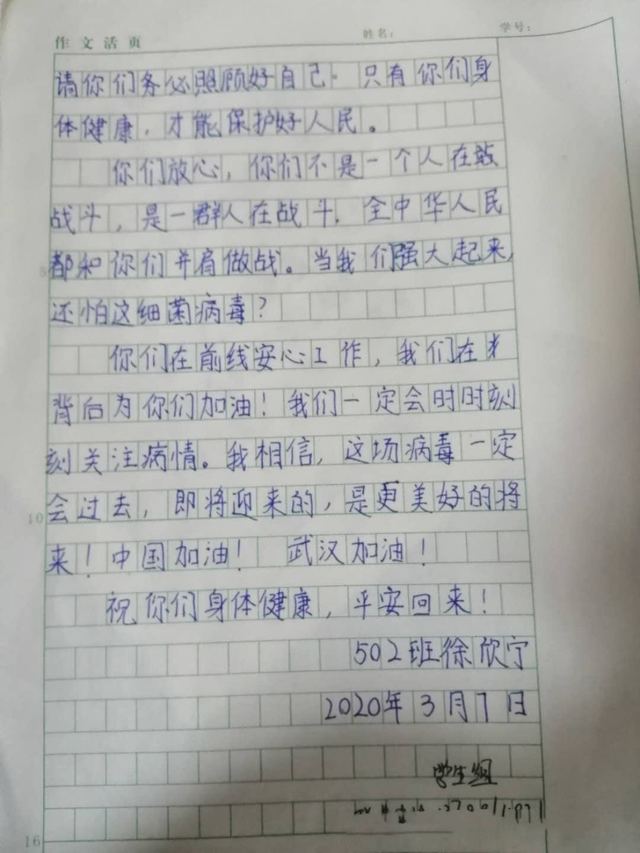 作文活页 姓名: 学号:
请你们务必照顾好自己. 只有你们身
体健康，才能保护好人民。
你们放心，你们不是一个人在敌
战斗，是一群人在战斗. 全中华人民
5都和你们并肩做战。当我们强大起来，
还怕这细菌病毒？
你们在前线安心工作，我们在
背后为你们加油！我们一定会时时刻
刻关注病情。我相信，这场病毒一定
10会过去，即将迎来的，是更美好的将
来！中国加油！ 武汉加油！
祝你们身体健康，平安回来！
502班徐欣宁
2020年3月7日
学生组
16